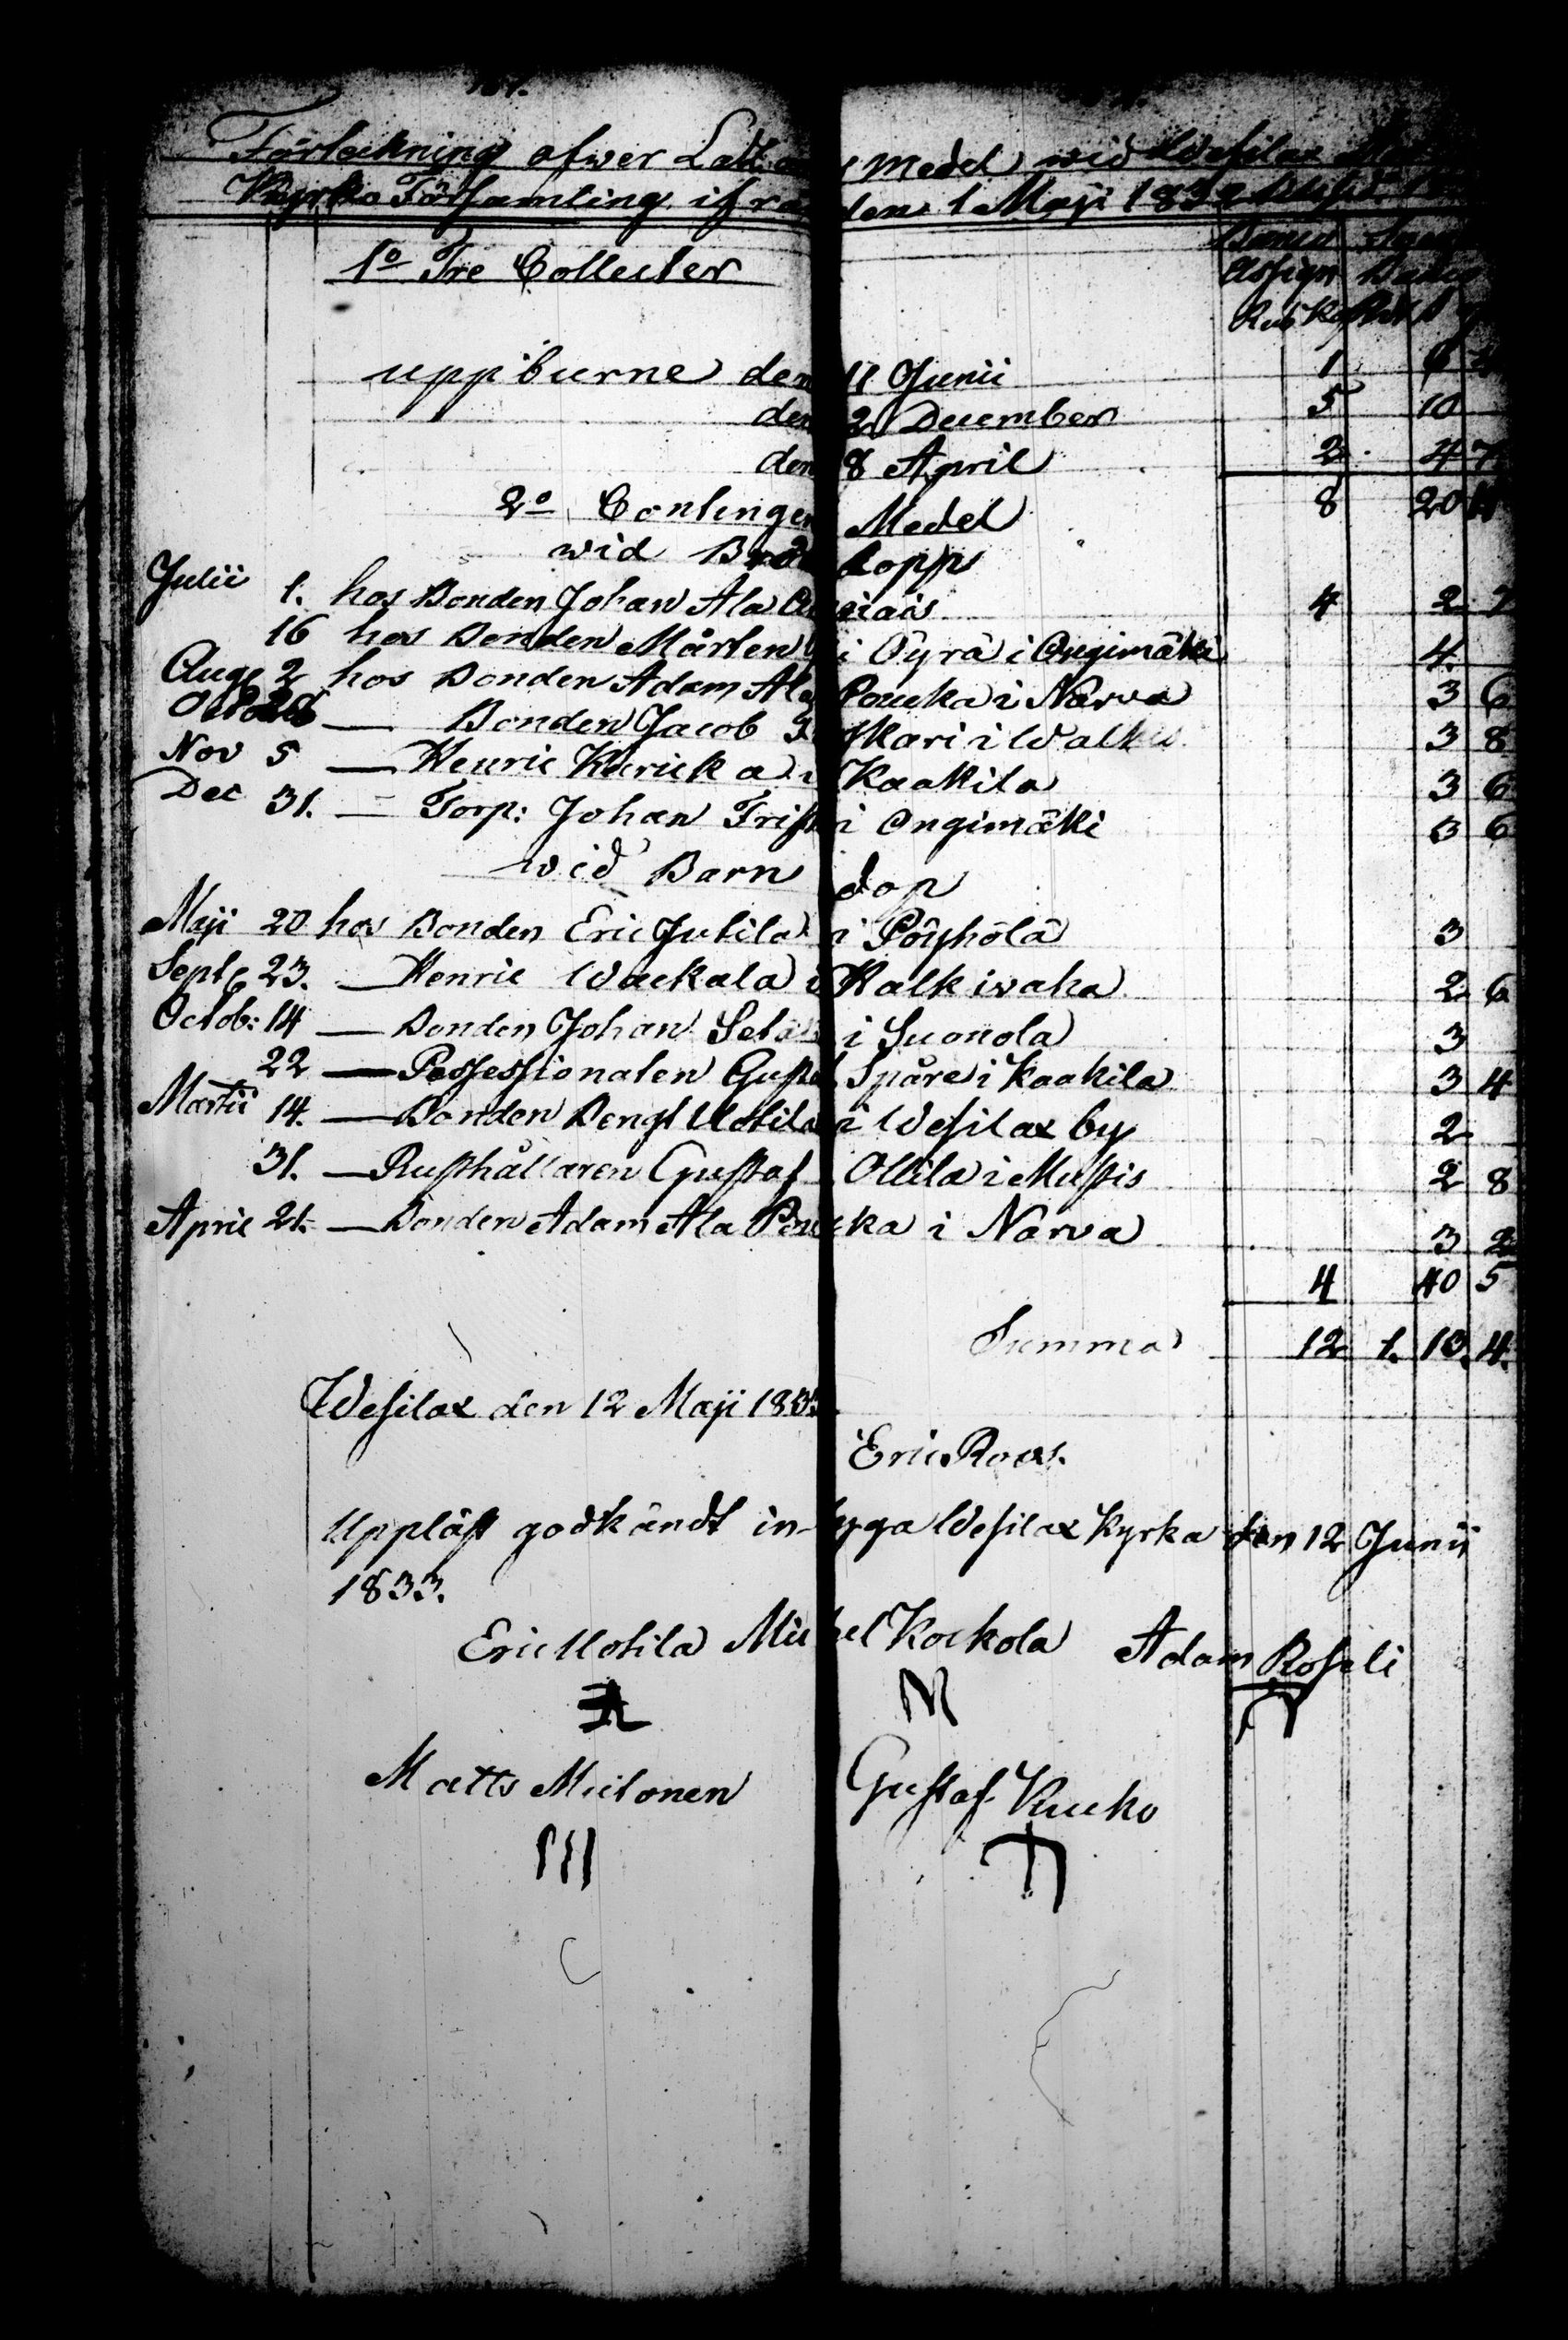 Förteckning öfwer Medel wid Wesilax
Kyrko Församling ifrån den 1 Maji 1832
Banco
Assign
Rub Kop
1o Tre Collecter
uppburne den 11 Junii 1 6
den 2 December 5 10
den 8 April 2 4 7
8 20
2o Contingen Medel
wid Bröllopps
Julii 1. hos Bonden Johan Ala 4 2
16 hos Bonden Mårten i Öyrä i Ongimäki 4
Aug 2 hos Bonden Adam Ala Poucka i Närva 3 6
Bonden Jacob 3 8
Nov 5 — Henric Kuricka i Kaakila 3 6
Dec 31. — Torp: Johan i Ongimäki 3 6
wid Barn dop
Maji 20 hos Bonden Eric Jutila i Pöyhölä 3
Sept 23. — Henric Wackala i Kalkiwaha 2 6
Octob: 14 — Bonden Johan i Suonola 3
22 — Possessionaten Gustaf Spåre i Kaakila 3 4
Martii 14. — Bonden Bengt Uotila i Wesilax by 2
31. — Rusthållaren Gustaf Ollila i Mustis 2 8
April 21. — Bonden Adam Ala Poucka i Närva 3 2
4 40 5
Summa 12 1. 13. 4.
Wesilax den 12 Maji 1833
Eric Roos.
Uppläst godkändt in Wesilax Kyrka den 12 Junii
1833.
Eric Uotila Michel Kockola Adam
Matts Gustaf Kuuko